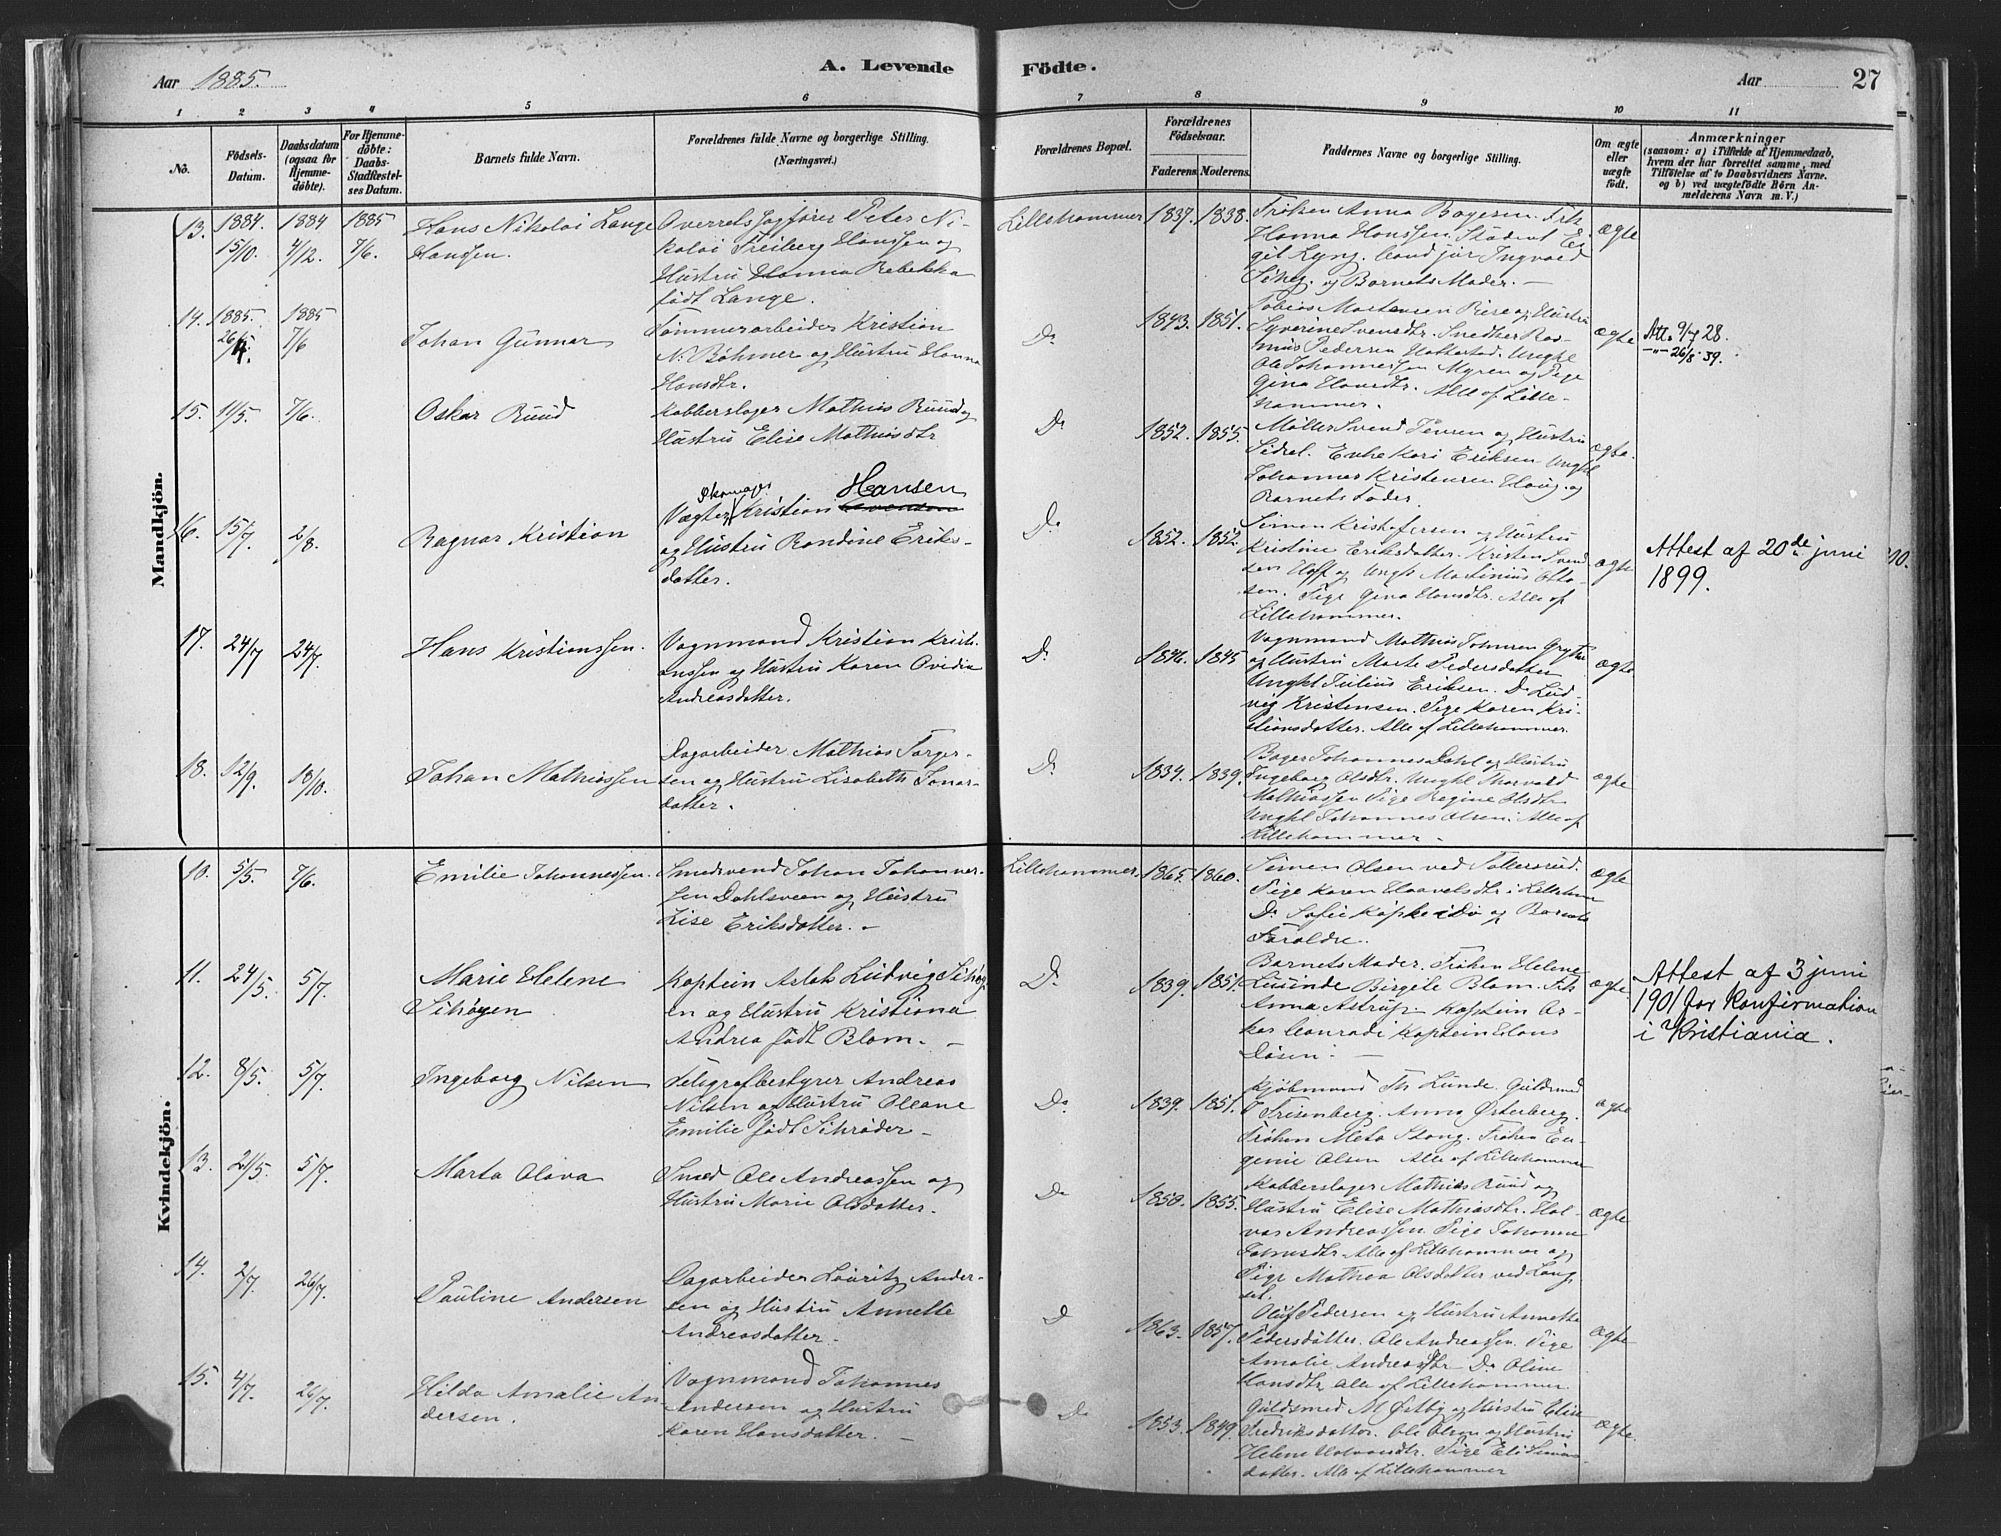 Aar 1885.
A. Levende Födte.
Aar 27
1 2 3 4 5 6 7 8 9 10 11
No.
Födsels-Datum.
Daabsdatum (ogsaa for Hjemmedöbte).
For Hjemmedöbte: Daabs-Stadfæstelses Datum.
Barnets fulde Navn.
Forældrenes fulde Navne og borgerlige Stilling. (Næringsvei.)
Forældrenes Bopæl.
Forældrenes Födselsaar.
Faderens. Moderens.
Faddernes Navne og borgerlige Stilling.
Om ægte eller uægte födt.
Anmærkninger
(saasom: a) i Tilfælde af Hjemmedaab, hvem der har forrettet samme, med Tilföielse af to Daabsvidners Navne, og b) ved uægtefödte Börn Anmelderens Navn m. V.)
Mandkjön.
13. 1884 15/10. 1884 4/12. 1885 7/6.
Hans Nikolai Lange
Hanssen.
Overretssagfører Peter Ni-
kolai Freiberg Hanssen og
Hustru Hanna Rebekka
født Lange.
Lillehammer 1837. 1838.
Frøken Anna Bagesen. Frk.
Hanna Hanssen. Student Ei-
gil Lyng. Cand jur Ingvald
og Barnets Moder. —
ægte
14. 1885. 26/4. 1885 7/6
Johan Gunnar
Tømmerarbeider Kristian
N. Bøhmer og Hustru Hanna
Hansdtr.
Do 1843. 1851.
Tobias Mortensen Riise og Hustru
Syverine Svendsdtr. Snedker Ras-
mus Pedersen Hattestad. Ungkl
Ole Johannessen Myren og Pige
Gina Hansdtr. Alle af Lille-
hammer.
ægte
Att. 9/7 28.
—"— 26/8 39.
15. 11/5. 7/6.
Oskar Ruud
Kobberslager Mathias Ruud og
Hustru Elise Mathiasdtr
Do 1852. 1855.
Møller Svend Jensen og Hustru
Sidsel. Enke Kari Eriksen. Ungkl
Johannes Kristensen Haug og
Barnets Fader.
ægte.
16. 15/7. 2/8.
Ragnar Kristian
Skomager Hansen
Vægter Kristian
og Hustru Randine Eriks-
datter.
Do 1852. 1852.
Simen Kristofersen og Hustru
Kristine Eriksdatter. Kristen Svend-
sen Hoff og Ungkl Martinius Otto-
sen. Pige Gina Hansdtr. Alle af
Lillehammer.
ægte
Attest af 20de juni
1899.
17. 24/7 24/7.
Hans Kristianssen.
Vognmand Kristian Kristi-
anssen og Hustru Karen Ovidia
Andreasdatter.
Do 1846. 1845
Vognmand Mathias Johnsen
og Hustru Marte Pedersdatter
Ungkl Julius Eriksen. Do Lud-
vig Kristensen. Pige Karen Kri-
stiansdatter. Alle af Lillehammer.
ægte
18. 12/9. 18/10.
Johan Mathiassen
Dagarbeider Mathias Torger-
sen og Hustru Lisabeth Jonas-
datter.
Do 1834. 1839.
Bager Johannes Dahl og Hustru
Ingeborg Olsdtr. Ungkl Thorvald
Mathiassen Pige Regine Olsdtr
Ungkl Johannes Olsen. Alle af
Lillehammer —
ægte
Kvindekjön.
10. 5/5. 7/6.
Emilie Johannessen.
Smedsvend Johan Johannes-
sen Dahlsveen og Hustru
Lise Eriksdatter. —
Lillehammer. 1865. 1860.
Simen Olsen ved
Pige Karen Haavelsdtr i Lilleham
Do Sofie Køpke i Do og Barnets
Forældre.
ægte
11. 24/5. 5/7.
Marie Helene
Sihøyen
Kaptein Aslak Ludvig Sihøy-
en og Hustru Kristiana
Andrea født Blom. —
Do 1839. 1851.
Barnets Moder. Frøken Helene
Lusinde Birgite Blom. Frk
Anna Astrup Kaptein Os-
kar Conradi Kaptein Hans
Døsen. —
ægte
Attest af 3 juni
1901 for Konfirmation
i Kristiania.
12. 8/5. 5/7.
Ingeborg Nilsen
Telegrafbestyrer Andreas
Nilsen og Hustru Oleane
Emilie født Schrøder —
Do 1839. 1851.
Kjøbmand Th Lunde. Guldsmed
Frisenberg. Anna Østerberg.
Frøken Meta Stang. Frøken Eu-
genie Olsen Alle af Lillehammer
ægte
13. 21/5. 5/7.
Marta Olava
Smed Ole Andreassen og
Hustru Marie Olsdatter.
Do 1850. 1855.
Kobberslager Mathias Ruud og
Hustru Elise Mathiasdtr. Hal-
vor Andreassen. Pige Johanne
Johnsdtr. Alle af Lillehammer og
Pige Mathea Olsdatter ved Laug
set.
ægte
14. 2/7. 26/7.
Pauline Andersen
Dagarbeider Lauritz Ander-
sen og Hustru Annette
Andreasdatter.
D 1863. 1857.
Oluf Pedersen og Hustru Annette
Pedersdatter. Ole Andreassen. Pige
Amalie Andreasdtr Do Oline
Hansdtr. Alle af Lillehammer.
ægte
15. 4/7. 26/7.
Hilda Amalie An-
dersen.
Vognmand Johannes
Andersen og Hustru
Karen Hansdatter. —
Do 1853. 1849.
Guldsmed M Østby og Hustru Elise
Fredriksdatter. Ole Olsen og Hustru
Helene Pige Eli Simens
datter. Alle af Lillehammer
ægte.